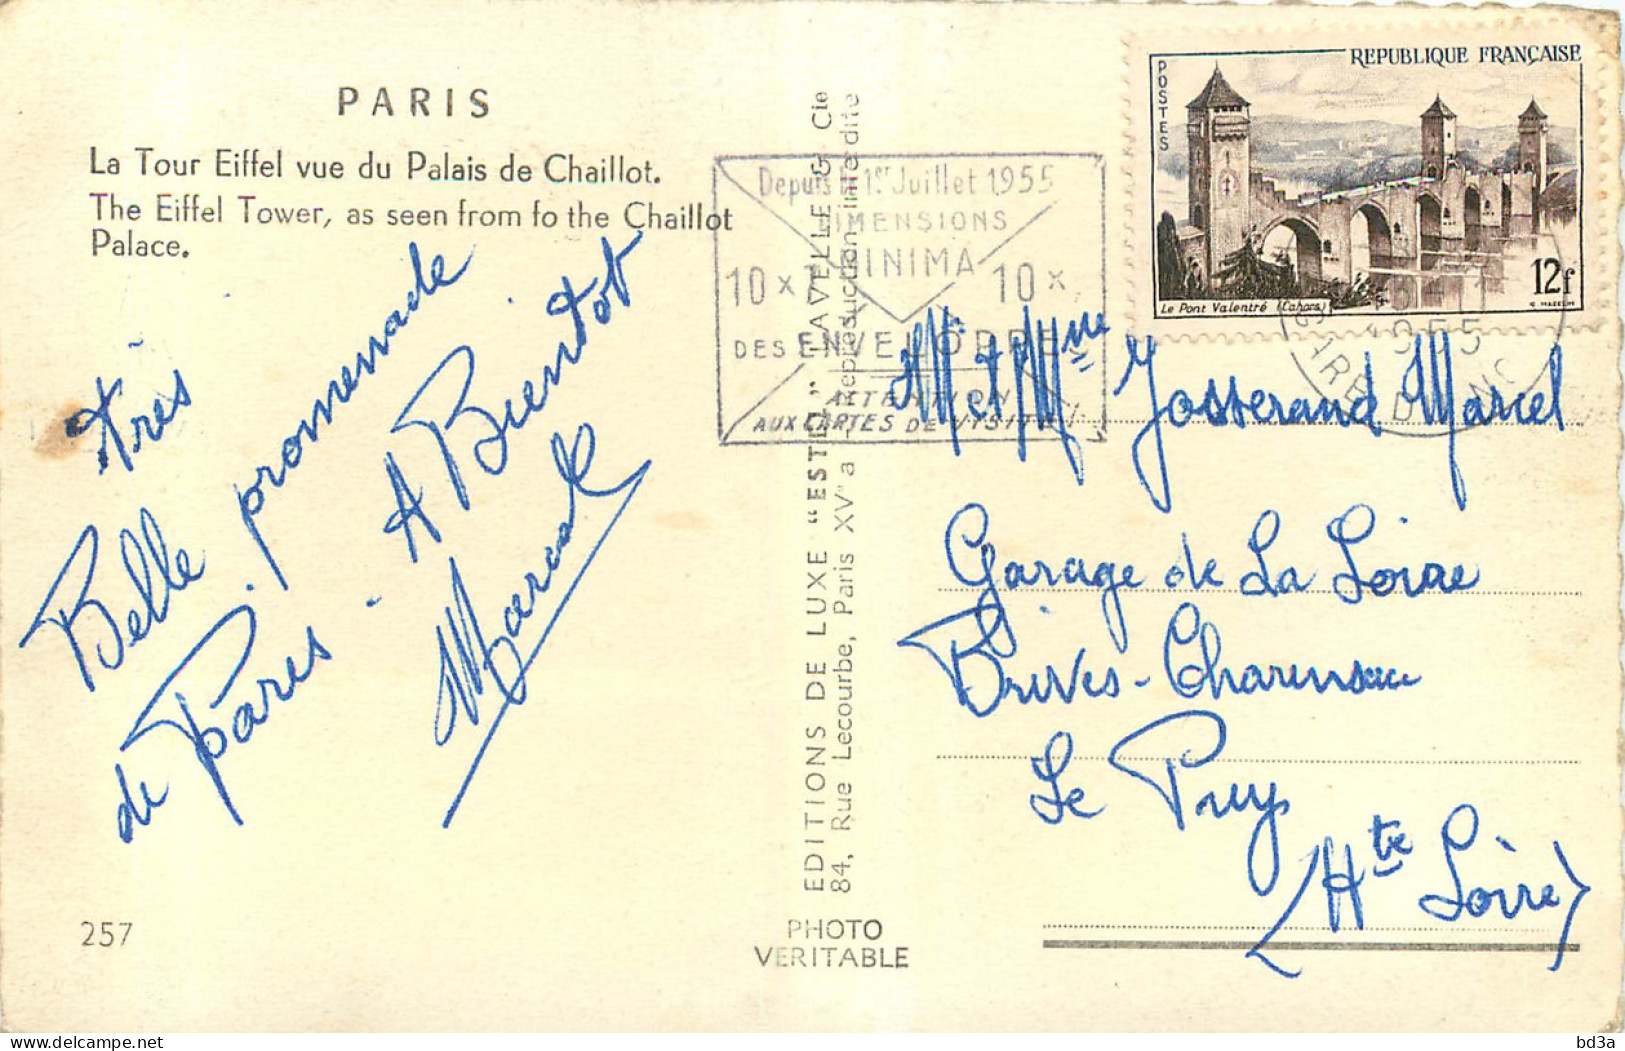 PARIS
La Tour Eiffel vue du Palais de Chaillot.
The Eiffel Tower, as seen from fo the Chaillot
Palace.
très
Belle promenade
de Paris. A Bientot
257
EDITIONS DE LUXE "ESTEL" LAVELLE & Cie
84, Rue Lecourbe, Paris XVe a - Reproduction interdite
PHOTO
VERITABLE
Depuis le 1er Juillet 1955
DIMENSIONS
MINIMA
10 x 10 x
DES ENVELOPPE
ATTENTION
AUX CARTES DE VISITE !
REPUBLIQUE FRANÇAISE
POSTES
12f
Le Pont Valentré (Cahors)
Mr et Mme Josserand Marcel
Garage de La Loire
Brives-Charensac
Le Puy
(Hte Loire)
bd3a